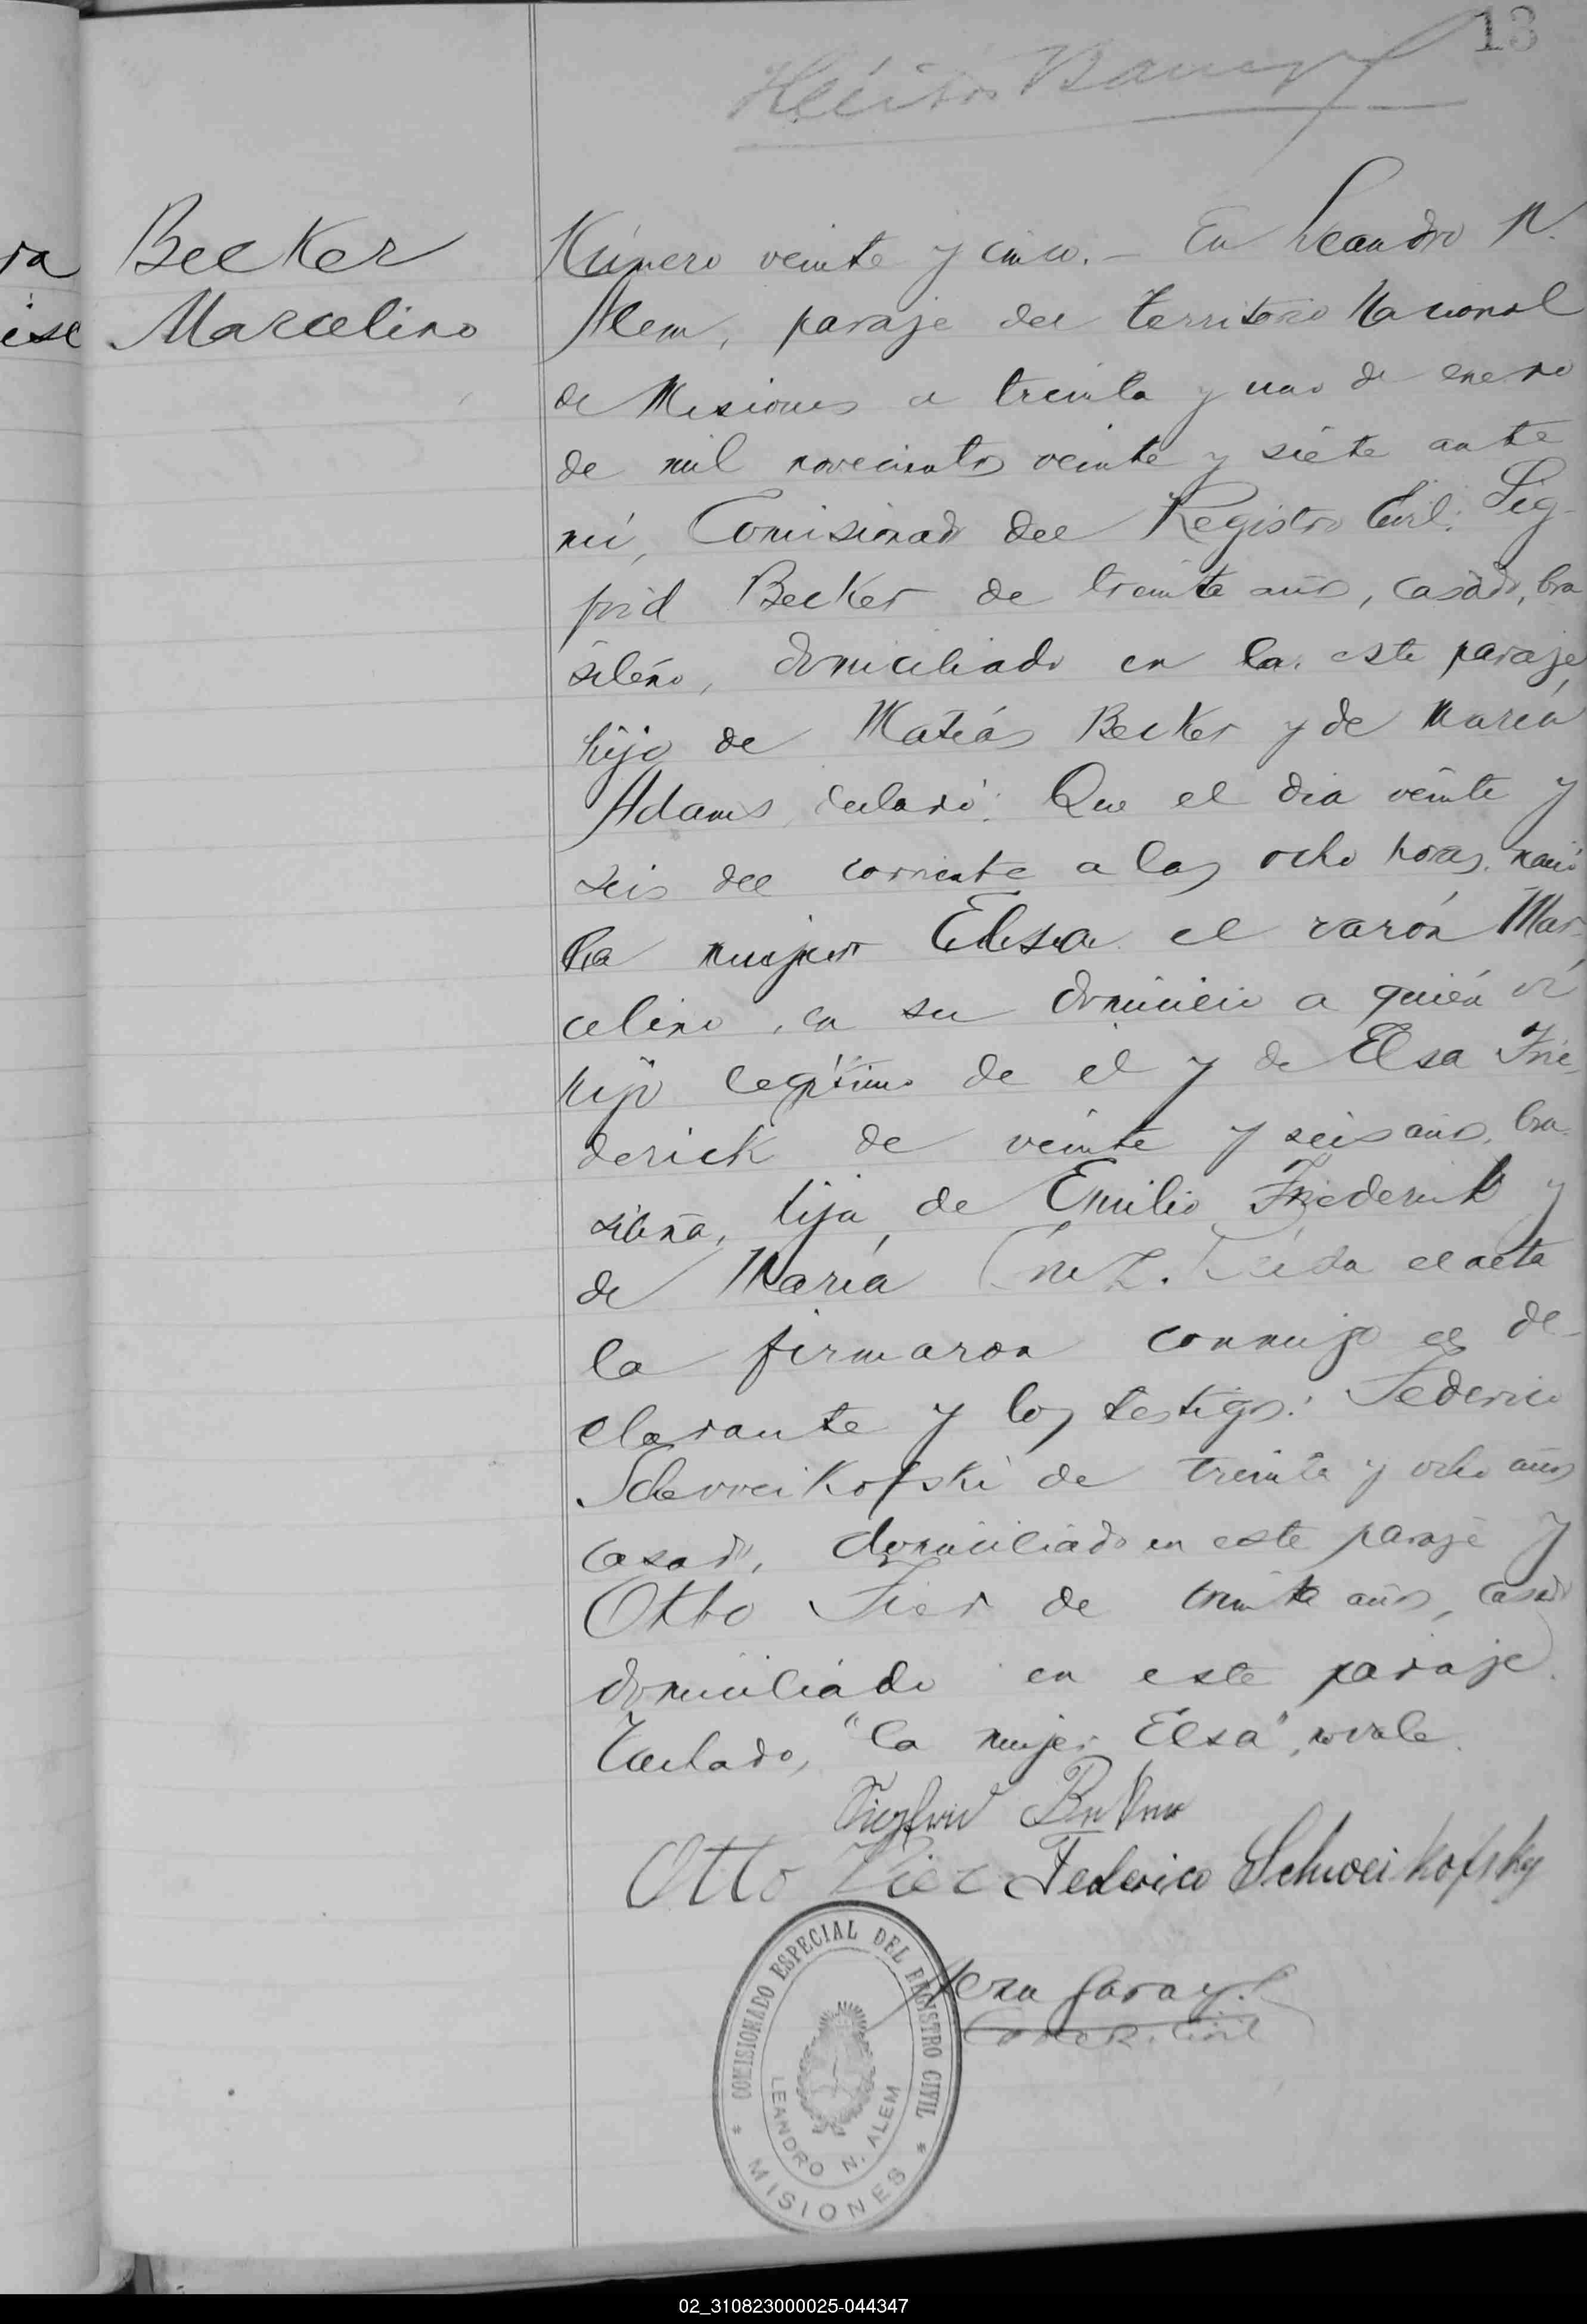 13
ra
Becker
ise
Marcelino
Número veinte y cinco. – En Leandro N.
Alem, paraje del Territorio Nacional
de Misiones a treinta y uno de enero
de mil novecientos veinte y siete ante
mí, Comisionado del Registro Civil: Sig-
frid Becker de treinta años, casado, bra
sileño, domiciliado en la este paraje,
hijo de Matías Becker y de María
Adams, declaró: Que el día veinte y
seis del corriente a las ocho horas, nació
la mujer Elsa el varón Mar-
celino, en su domicilio a quién vi
hijo legítimo de el y de Elsa Frie-
derick de veinte y seis años, bra-
sileña, hija de Emilio Friederick y
de María Leída el acta
la firmaron conmigo el de-
clarante y los testigos: Federico
Schweikofski de treinta y ocho años
casado, domiciliado en este paraje y
Otto de treinta años, casado
domiciliado en este paraje.
Tachado, "la mujer Elsa", no vale.
Siegfried Becker
Otto Federico Schweikofsky
Garay
COMISIONADO ESPECIAL DEL REGISTRO CIVIL
LEANDRO N. ALEM
* MISIONES *
02_310823000025-044347